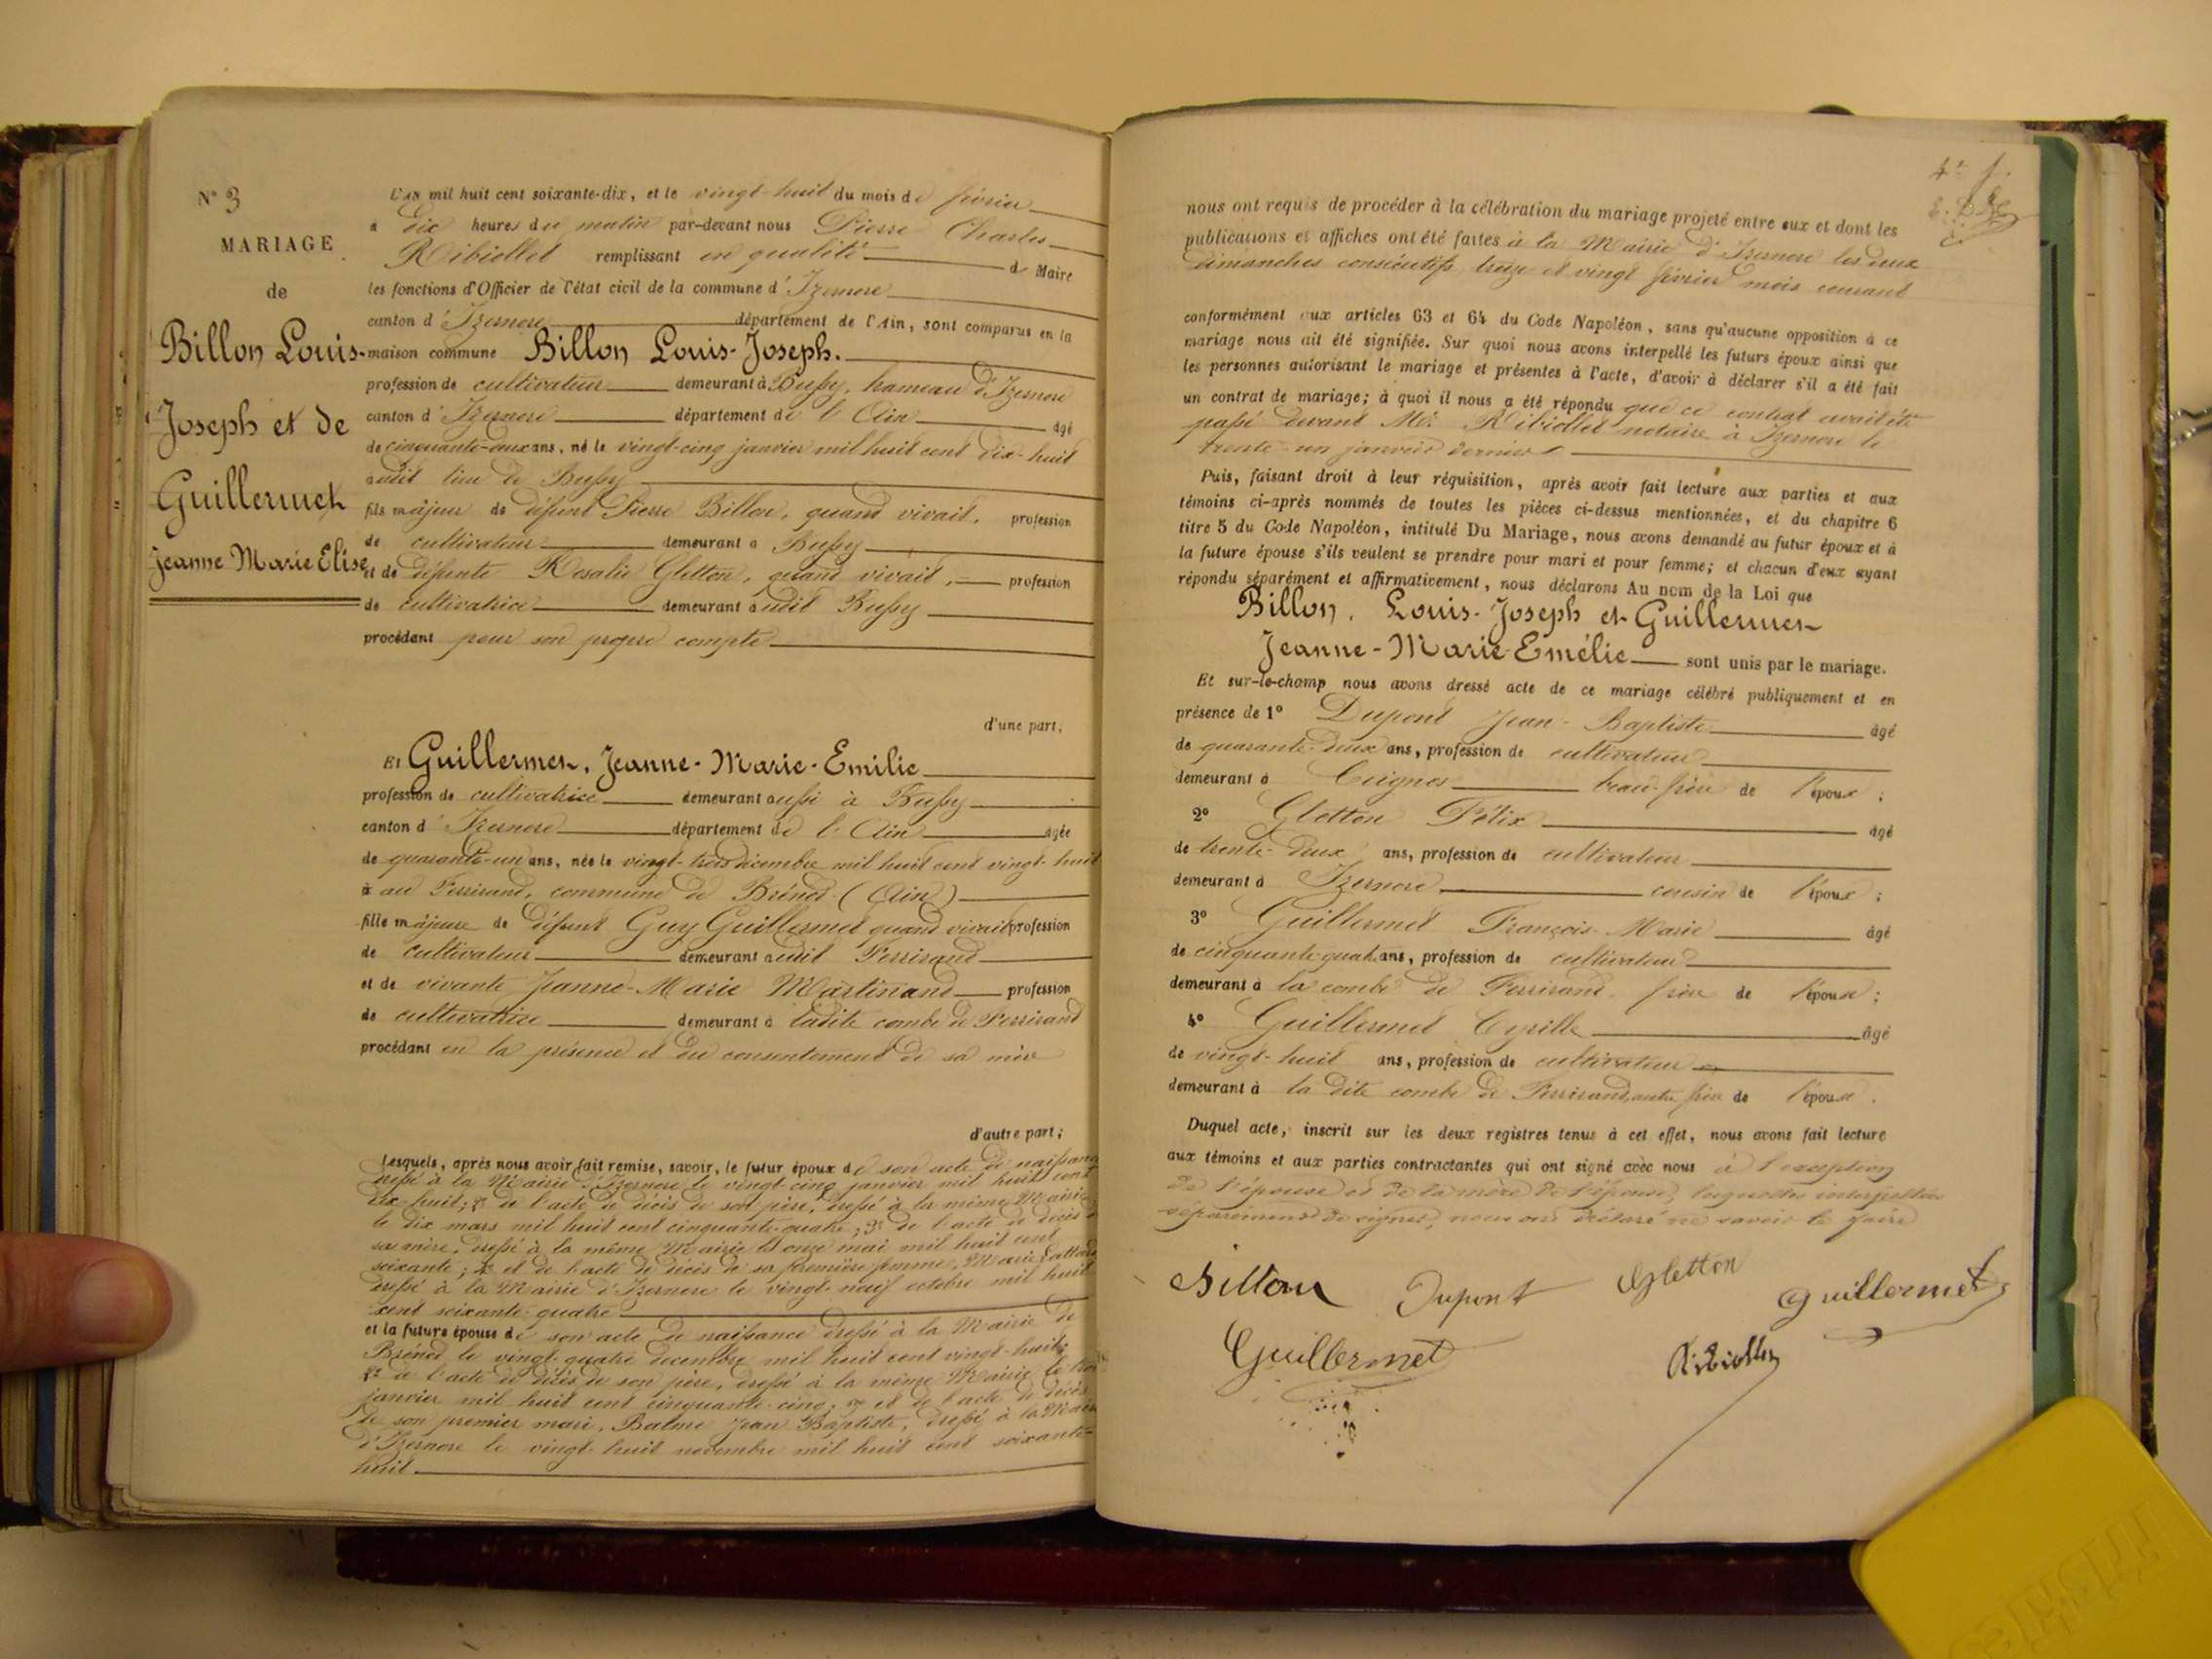 N° 3
MARIAGE
de
Billon Louis-
Joseph et de
Guillermet
Jeanne Marie Elise
L'an mil huit cent soixante-dix, et le vingt-huit du mois de février
à dix heures du matin par-devant nous Pierre Charles
Ribiollet remplissant en qualité de Maire
les fonctions d'Officier de l'état civil de la commune d'Izernore
canton d'Izernore département de l'Ain, sont comparus en la
maison commune Billon Louis-Joseph.
profession de cultivateur demeurant à Bussy, hameau d'Izernore
canton d'Izernore département de l'Ain âgé
de cinquante-deux ans, né le vingt-cinq janvier mil huit cent dix-huit
audit lieu de Bussy
fils majeur de défunt Pierre Billon, quand vivait, profession
de cultivateur demeurant à Bussy
et de défunte Rosalie Gletton, quand vivait, profession
de cultivatrice demeurant audit Bussy
procédant pour son propre compte
d'une part;
Et Guillermet, Jeanne-Marie-Emilie
profession de cultivatrice demeurant aussi à Bussy
canton d'Izernore département de l'Ain âgée
de quarante-un ans, née le vingt-trois décembre mil huit cent vingt-huit
à au Ferrirand, commune de Brénod (Ain)
fille majeure de défunt Guy Guillermet quand vivait profession
de cultivateur demeurant audit Ferrirand
et de vivante Jeanne-Marie Martinand profession
de cultivatrice demeurant à ladite combe de Ferrirand
procédant en la présence et du consentement de sa mère
d'autre part;
Lesquels, après nous avoir fait remise, savoir, le futur époux de son acte de naissance
dressé à la Mairie d'Izernore le vingt-cinq janvier mil huit cent
dix-huit; 2° de l'acte de décès de son père, dressé à la même Mairie
le dix mars mil huit cent cinquante-quatre; 3° de l'acte de décès de
sa mère, dressé à la même Mairie le onze mai mil huit cent
soixante; 4° et de l'acte de décès de sa première femme, Marie
dressé à la Mairie d'Izernore le vingt-neuf octobre mil huit
cent soixante-quatre
et la future épouse de son acte de naissance dressé à la Mairie de
Brénod le vingt-quatre décembre mil huit cent vingt-huit;
2° de l'acte de décès de son père, dressé à la même Mairie le
janvier mil huit cent cinquante-cinq; 3° et de l'acte de décès
de son premier mari, Balme Jean Baptiste, dressé à la Mairie
d'Izernore le vingt-huit novembre mil huit cent soixante-
huit
nous ont requis de procéder à la célébration du mariage projeté entre eux et dont les
publications et affiches ont été faites à la Mairie d'Izernore les deux
dimanches consécutifs treize et vingt février mois courant
conformément aux articles 63 et 64 du Code Napoléon, sans qu'aucune opposition à ce
mariage nous ait été signifiée. Sur quoi nous avons interpellé les futurs époux ainsi que
les personnes autorisant le mariage et présentes à l'acte, d'avoir à déclarer s'il a été fait
un contrat de mariage; à quoi il nous a été répondu que ce contrat avait été
passé devant Me. Ribiollet notaire à Izernore le
trente-un janvier dernier
Puis, faisant droit à leur réquisition, après avoir fait lecture aux parties et aux
témoins ci-après nommés de toutes les pièces ci-dessus mentionnées, et du chapitre 6
titre 5 du Code Napoléon, intitulé Du Mariage, nous avons demandé au futur époux et à
la future épouse s'ils veulent se prendre pour mari et pour femme; et chacun d'eux ayant
répondu séparément et affirmativement, nous déclarons Au nom de la Loi que
Billon, Louis-Joseph et Guillermet
Jeanne-Marie-Emélie sont unis par le mariage.
Et sur-le-champ nous avons dressé acte de ce mariage célébré publiquement et en
présence de 1° Dupont Jean-Baptiste âgé
de quarante-deux ans, profession de cultivateur
demeurant à Ceignes beau-frère de l'époux;
2° Gletton Félix âgé
de trente-deux ans, profession de cultivateur
demeurant à Izernore cousin de l'époux;
3° Guillermet François-Marie âgé
de cinquante-quatre ans, profession de cultivateur
demeurant à la combe de Ferrirand frère de l'épouse;
4° Guillermet Cyrille âgé
de vingt-huit ans, profession de cultivateur
demeurant à la dite combe de Ferrirand, autre frère de l'épouse.
Duquel acte, inscrit sur les deux registres tenus à cet effet, nous avons fait lecture
aux témoins et aux parties contractantes qui ont signé avec nous à l'exception
de l'épouse et de la mère de l'épouse, lesquelles interpellées
séparément de signer, nous ont déclaré ne savoir le faire
Billon Dupont Gletton Guillermet
Guillermet Ribiollet